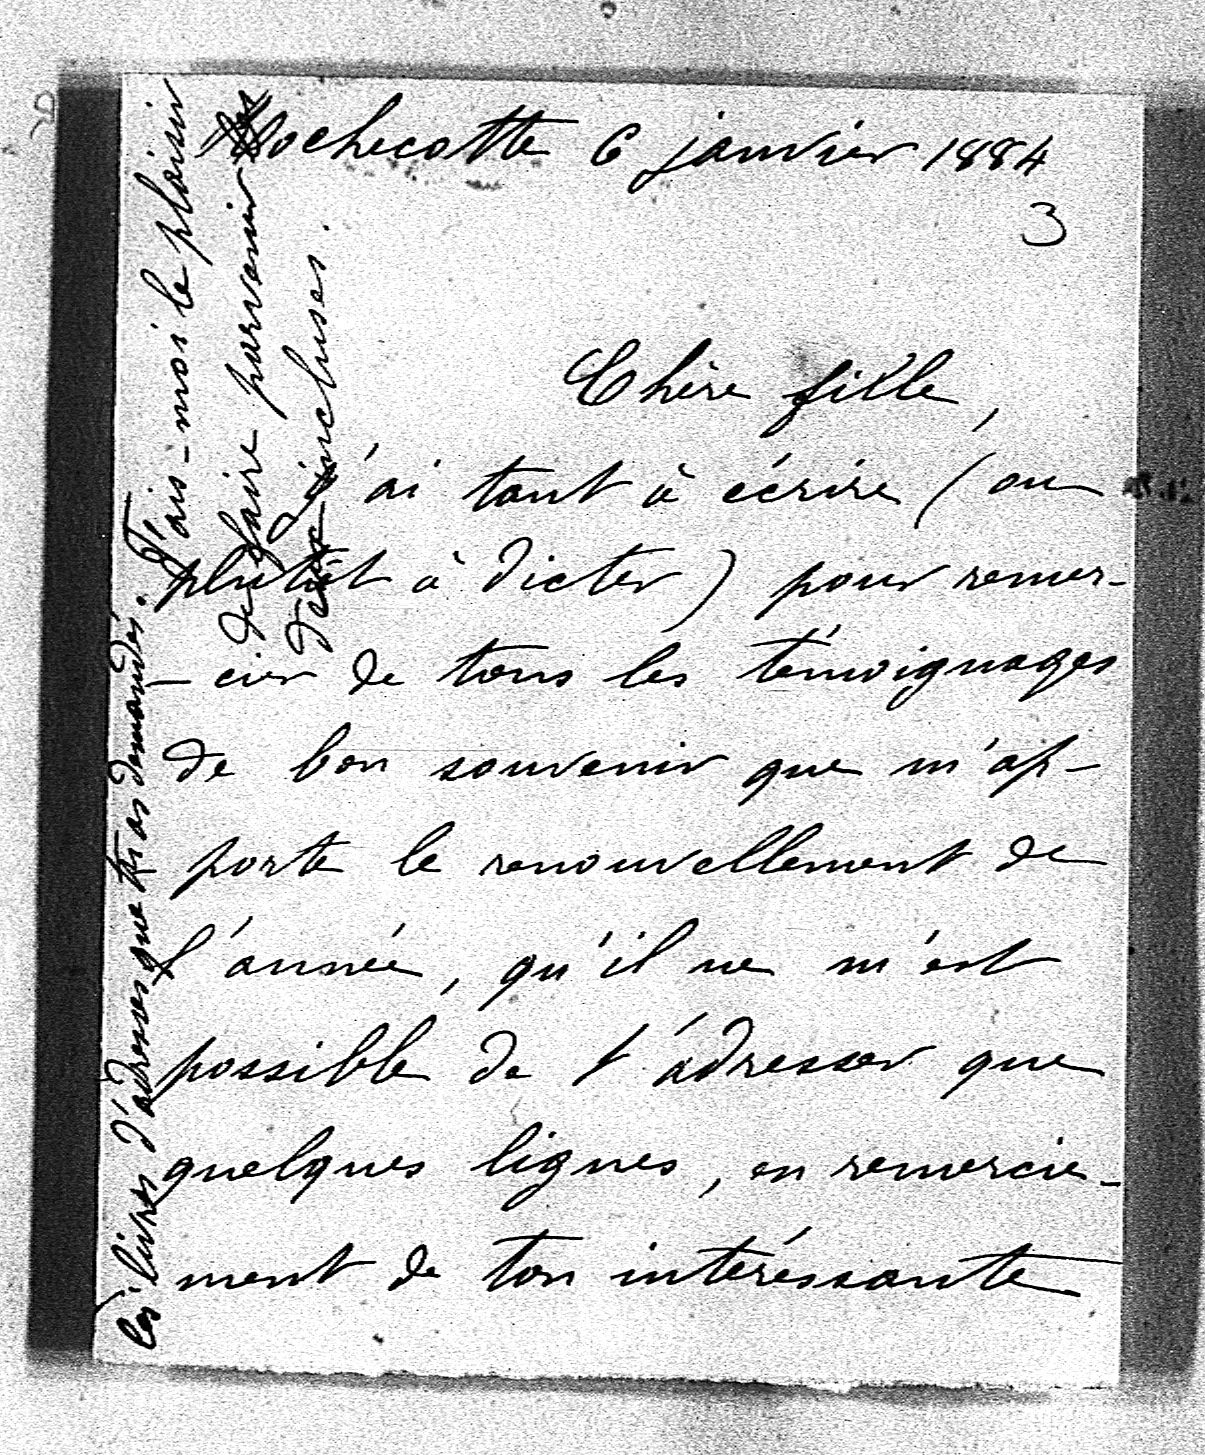 Rochecotte 6 janvier 1884
3
Chère fille,
J'ai tant à écrire (ou
plutôt à dicter) pour remer-
-cier de tous les témoignages
de bon souvenir que m'ap-
porte le renouvellement de
l'année, qu'il ne m'est
possible de t'adresser que
quelques lignes, en remercie-
ment de ton intéressante
les livres d'adresses que tu as demandés.
Fais-moi le plaisir
de faire parvenir les
deux incluses.